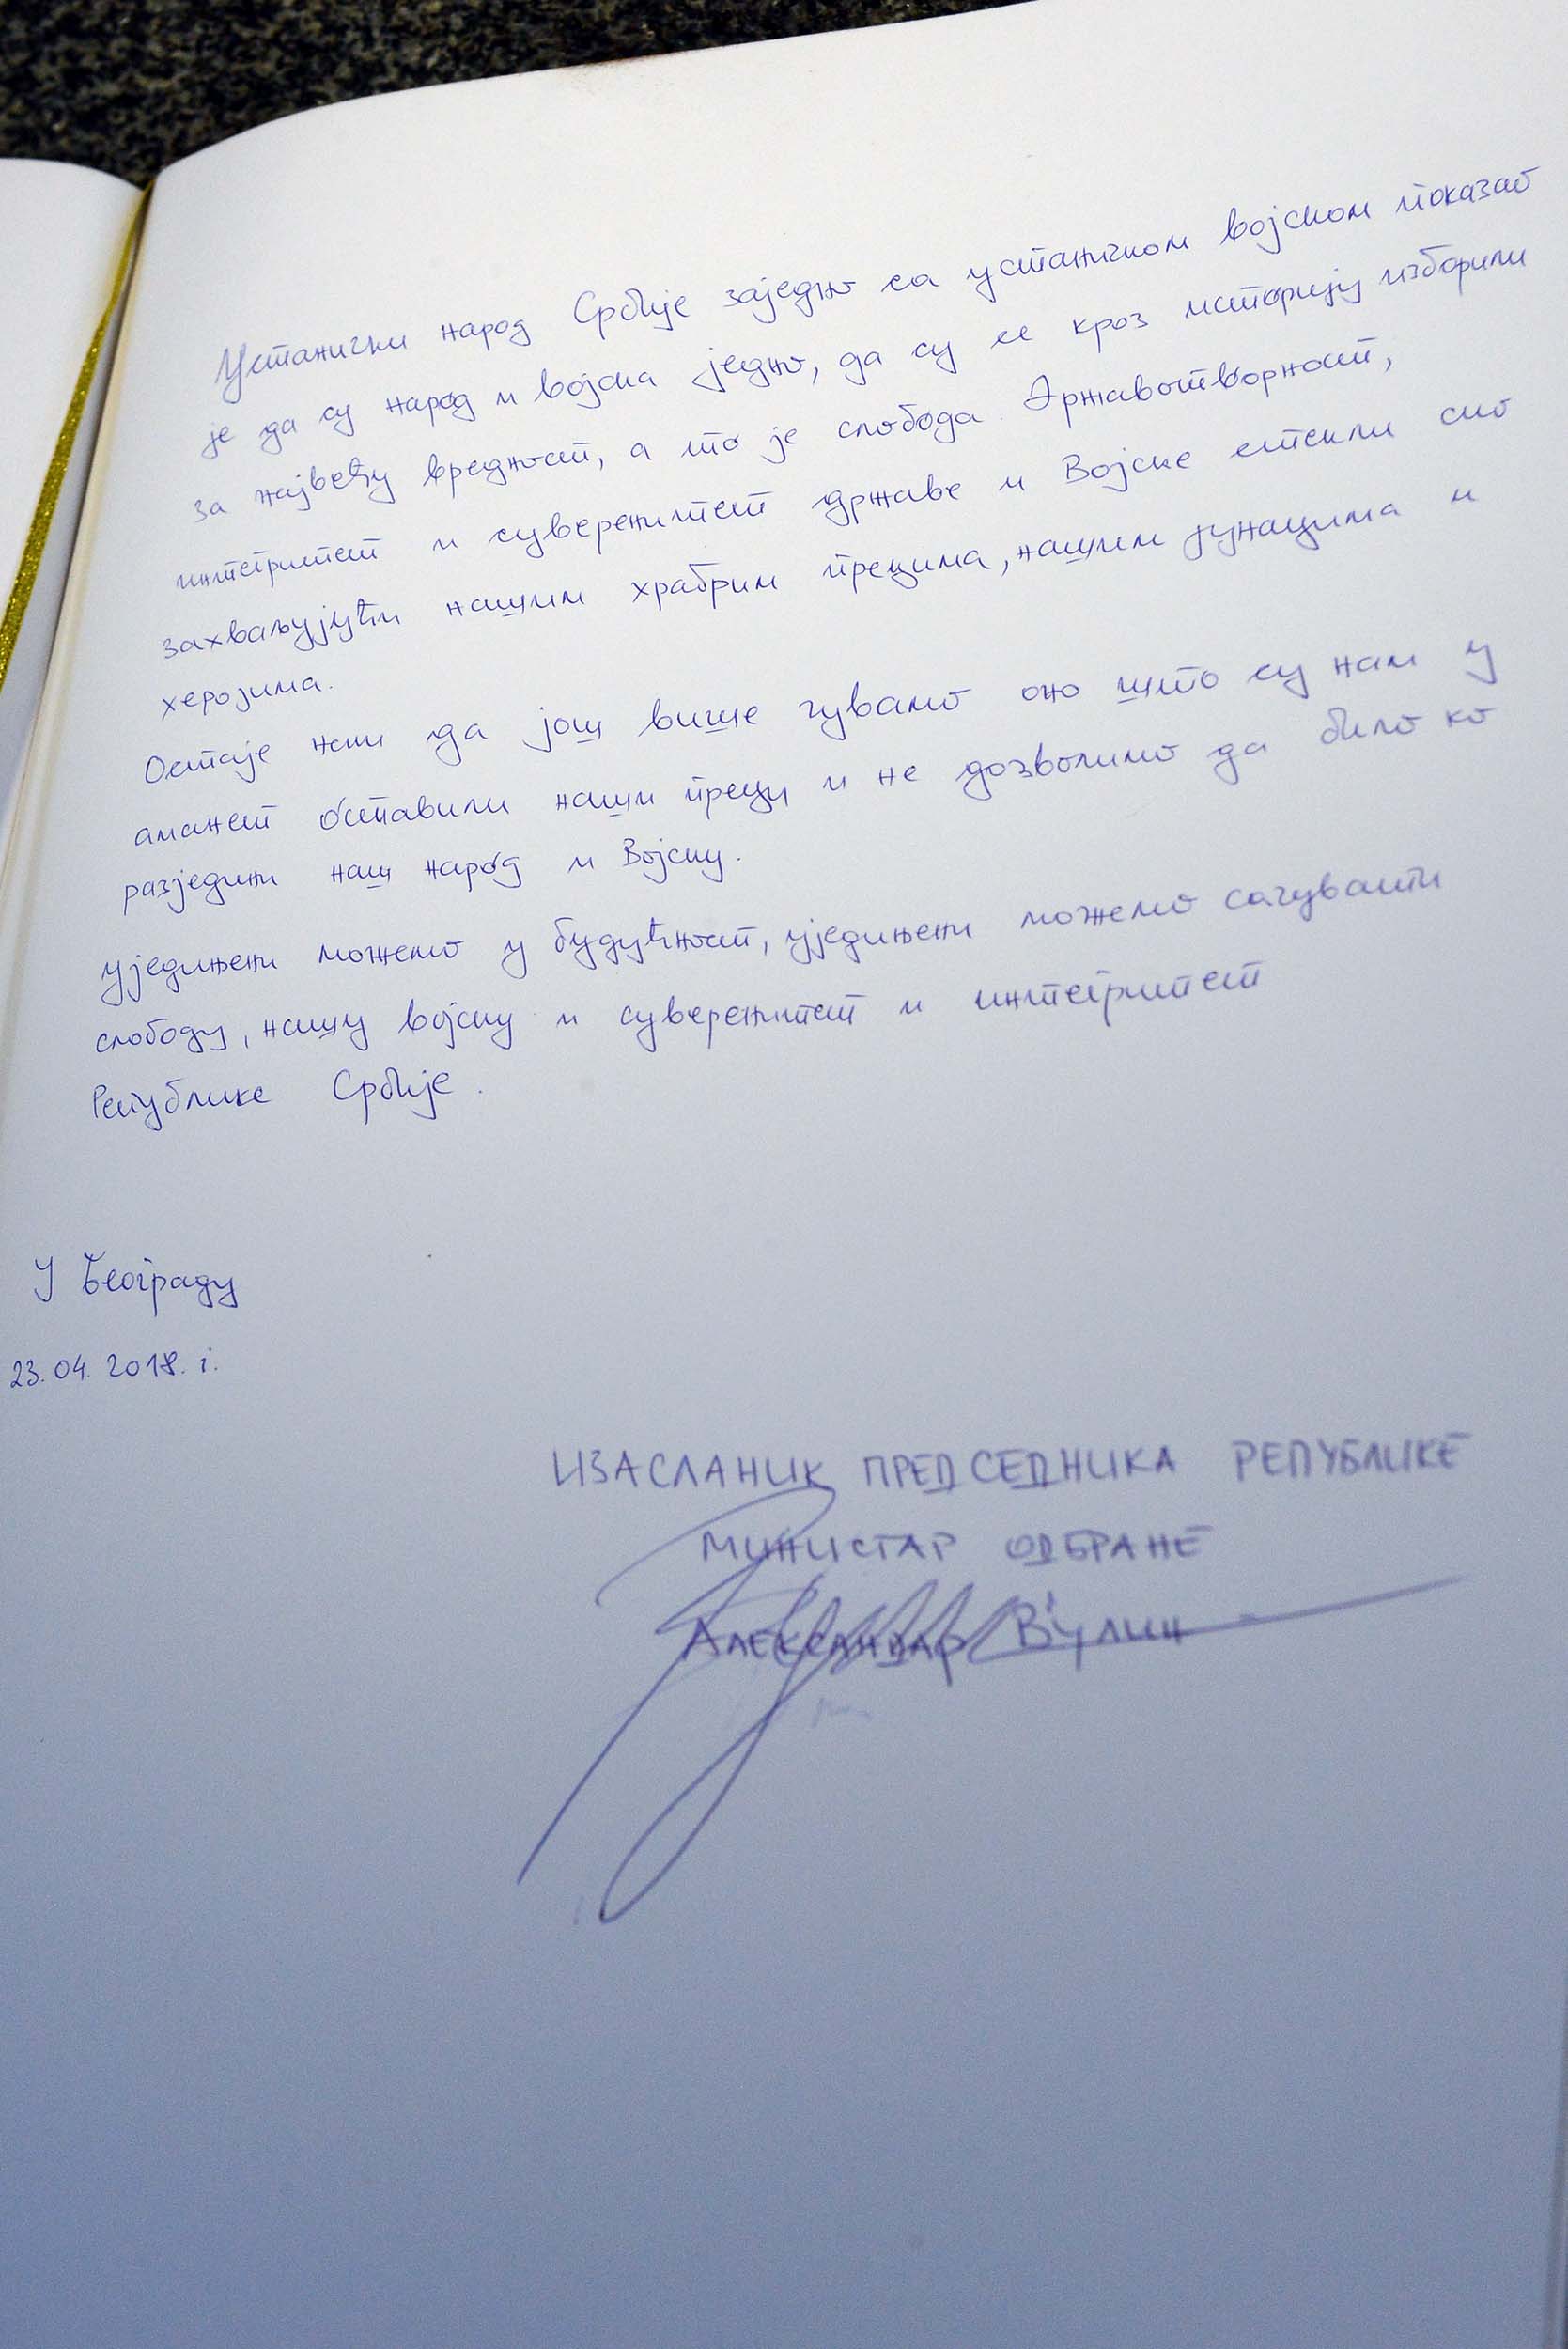 Устанички народ Србије заједно са устаничком војском показао
је да су народ и војска једно, да су се кроз историју изборили
за највећу вредност, а то је слобода. Државотворност,
интегритет и суверенитет државе и Војске стекли смо
захваљујући нашим храбрим прецима, нашим јунацима и
херојима.
Остаје нам да још више чувамо оно што су нам у
аманет оставили наши преци и не дозволимо да било ко
разједини наш народ и Војску.
Уједињени можемо у будућност, уједињени можемо сачувати
слободу, нашу војску и суверенитет и интегритет
Републике Србије.
У Београду
23.04.2018. г.
ИЗАСЛАНИК ПРЕДСЕДНИКА РЕПУБЛИКЕ
МИНИСТАР ОДБРАНЕ
АЛЕКСАНДАР ВУЛИН